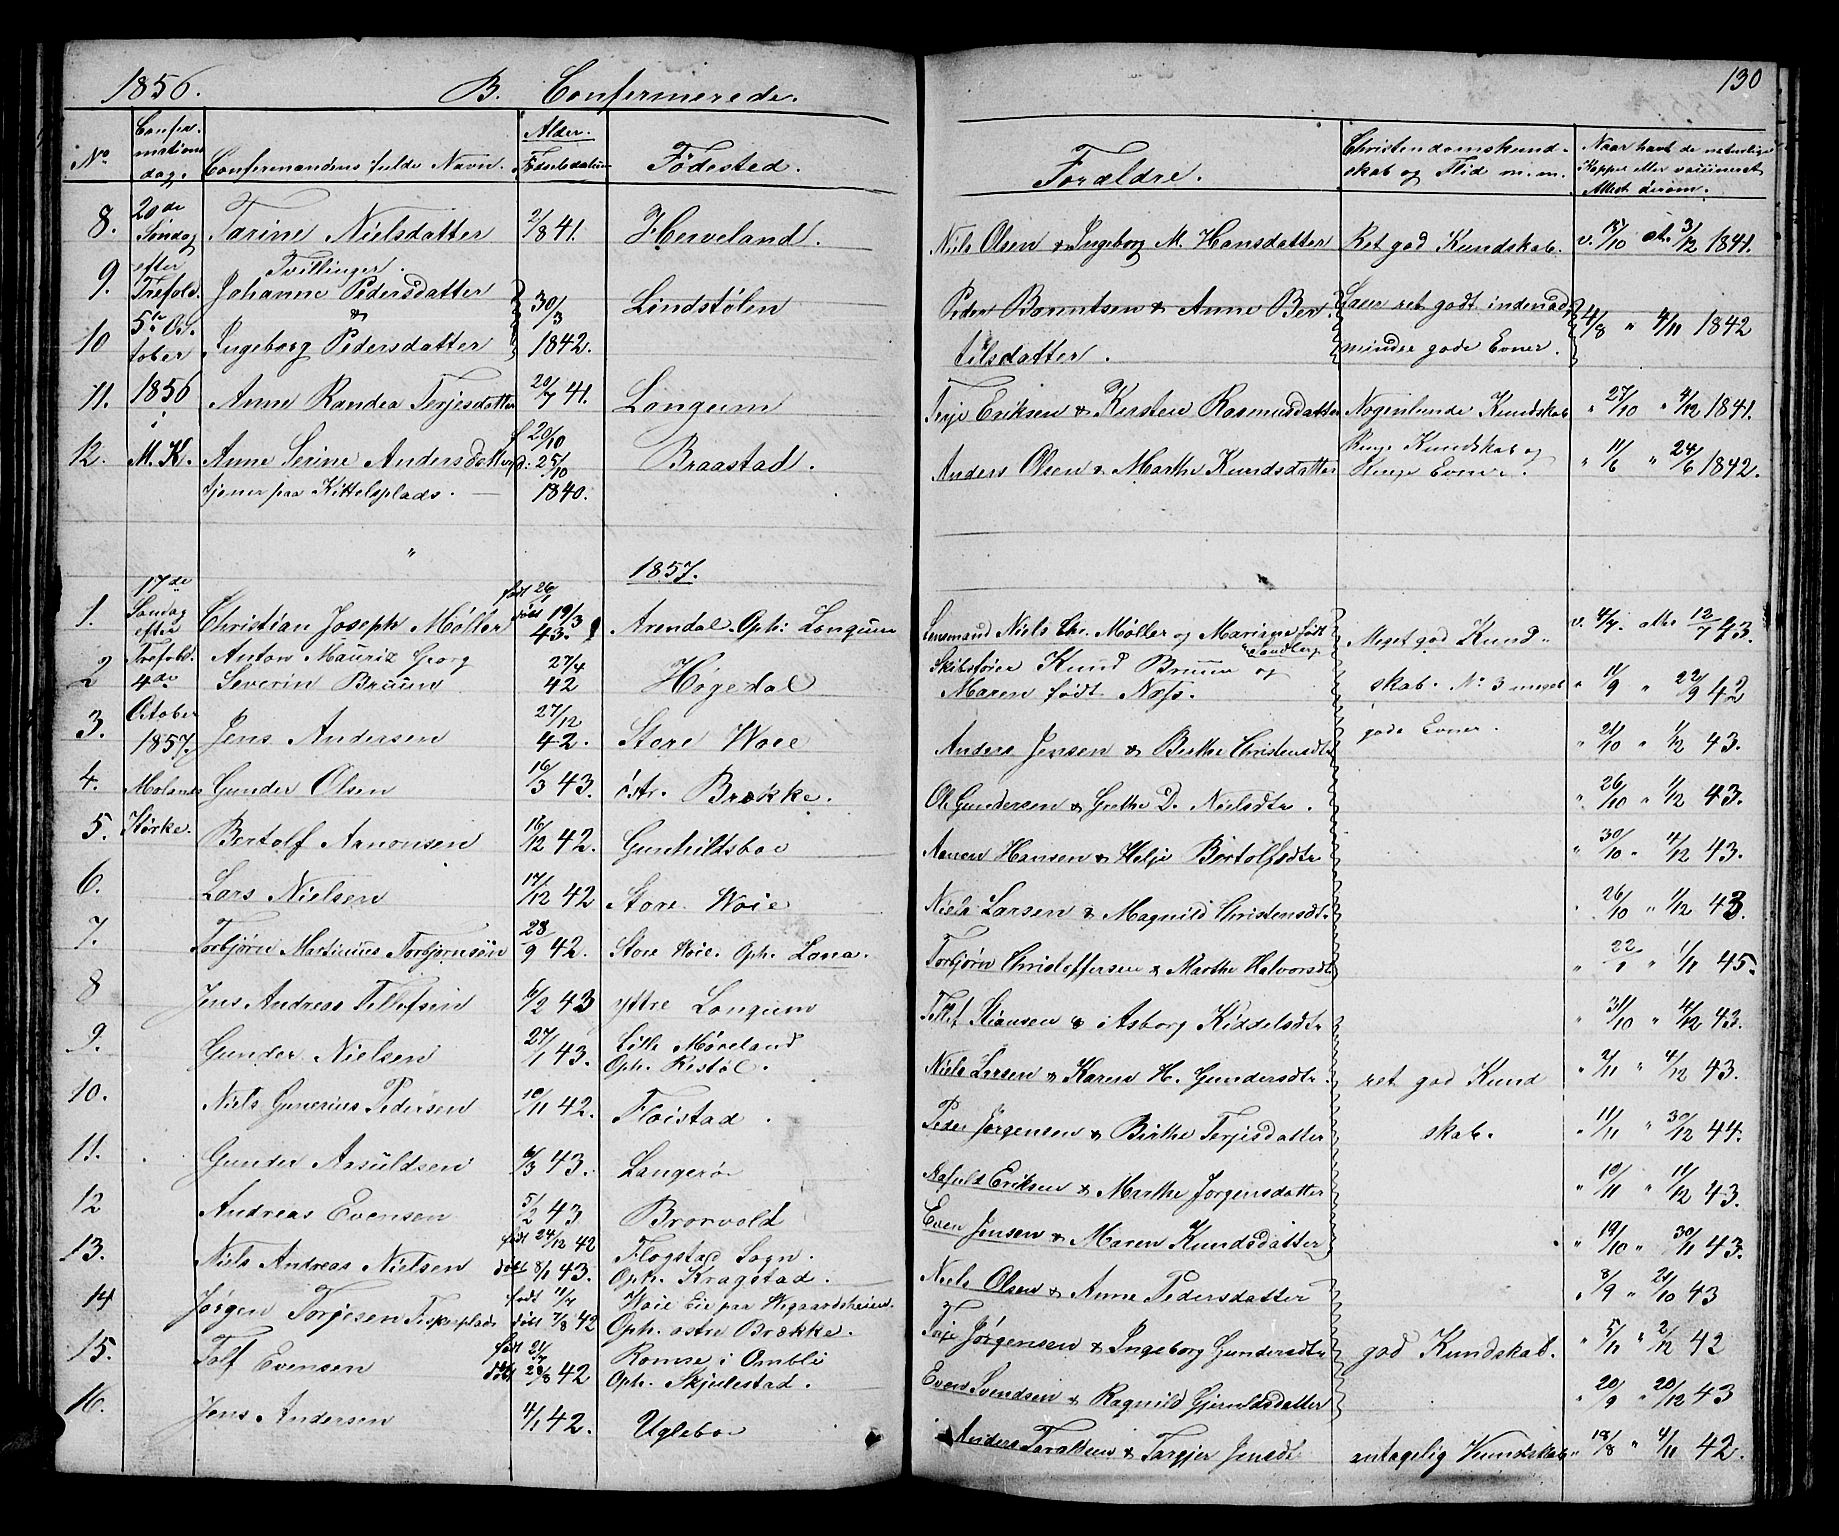 1856. B. Confermerede. 130
No. Confirmations dag. Confermandens fulde Navn. Alder. Fødselsdatum Fødested. Forældre. Christendomskundskab og Flid m. m. Naar havt de naturlige Kopper eller vaccineret Attest derom.
8. 20de Søndag Tarine Nielsdatter 2/8 41. Herveland. Niels Olsen & Ingeborg M. Hansdatter Ret god Kundskab. v. 15/10 att. 3/12 1841.
efter Tvillinger.
9. Trefold. Johanne Pedersdatter 30/3 Lindstølen Peder Berntsen & Anne Ber
5te Oc- & 4/8 " 4/11 1842
10 tober Ingeborg Pedersdatter 1842. tilsdatter. mindre gode Evner.
11. 1856 Anne Randea Terjesdatter 20/7 41. Longum Terje Eriksen & Kirsten Rasmusdatter Nogenlunde Kundskab " 27/10 " 4/12 1841.
i
12. M. K. Anne Serine Andersdatter f 20/10 d: 25/10 Braastad. Anders Olsen & Marthe Knudsdatter Ringe Kundskab og Ringe Evner. " 11/6 " 24/6 1842.
tjener paa Kittelsplads. 1840.
"
1857.
1. 17de Søndag efter Christian Joseph Møller født 26/1 døbt 19/3 43. Arendal. Oph: Longum Lensmand Niels Chr. Møller og Mariane født Sandberg Meget god Kund- v. 4/7. att. 12/7 43.
2 Trefold. 4de Anton Mauriz Georg Severin Bruun 27/4 42 Høgedal Skibsfører Knud Bruun og Maren født Næss. skab. No 3 meget " 11/9 " 22/9 42
3. October 1857. Jens Andersen 27/12 42. Store Woie Anders Jensen & Birthe Christensdtr gode Evner. " 21/10 " 1/12 43.
4. Molands Gunder Olsen 16/3 43. østr. Brække. Ole Gundersen & Grethe D. Nielsdtr. " 26/10 " 1/12 43.
5. Kirke. Bertolf Aanonsen 16/12 42. Gunhildsboe Aanon Hansen & Helje Bertolfsdtr " 30/10 " 4/12 43.
6. Lars Nielsen 17/12 42 Store Woie Niels Larsen & Magnild Christensdt. " 26/10 " 1/12 43.
7. Torbjørn Martinius Torbjørnsøn 28/9 42. Store Woie. Oph. Lona. Torbjørn Christoffersen & Marthe Halvorsdt " 22/1 " 1/11 45.
8 Jens Andreas Tellefsen 6/2 43 yttre Longum Tellef Stiansen & Asborg Kiddelsdtr " 31/10 " 4/12 43.
9. Gunder Nielsen 27/1 43. Lille Møreland Oph. Ristøl. Niels Larsen & Karen H. Gundersdtr. ret god Kund " 2/11 " 4/12 43.
10. Niels Gunerius Pedersen 10/11 42. Fløistad. Peder Jørgensen & Birthe Terjesdatter skab. " 11/11 " 30/12 44.
11. Gunder Aasuldsen 6/3 43. Langerø Aasuld Eriksen & Marthe Jørgensdatter " 10/11 " 11/12 43.
12 Andreas Evensen 5/2 43 Brorvold Even Jensen & Maren Knudsdatter " 19/10 " 30/11 43.
13. Niels Andreas Nielsen født 24/12 42 døbt 8/1 43. Flogstad Sogn. Oph. Kragstad. Niels Olsen & Anne Pedersdatter " 8/9 " 21/10 43
14 Jørgen Terjesen Fiskerplads født 11/7 døbt 7/8 42 Woie Eie paa Wegaardsheien. Oph. østre Brække. Terje Jørgensen & Ingeborg Gundersdtr god Kundskab. " 5/11 " 2/12 42
15. Tolf Evensen født 21/7 døbt 28/8 42 Romse i Omlie Oph. Skjulestad. Even Svendsen & Ragnild Gjeruldsdatter " 20/9 " 20/12 43
16. Jens Andersen 4/1 42. Uglebo Anders Taraldsen & Targjer Jensdt antagelig Kundskab " 18/8 " 4/11 42.